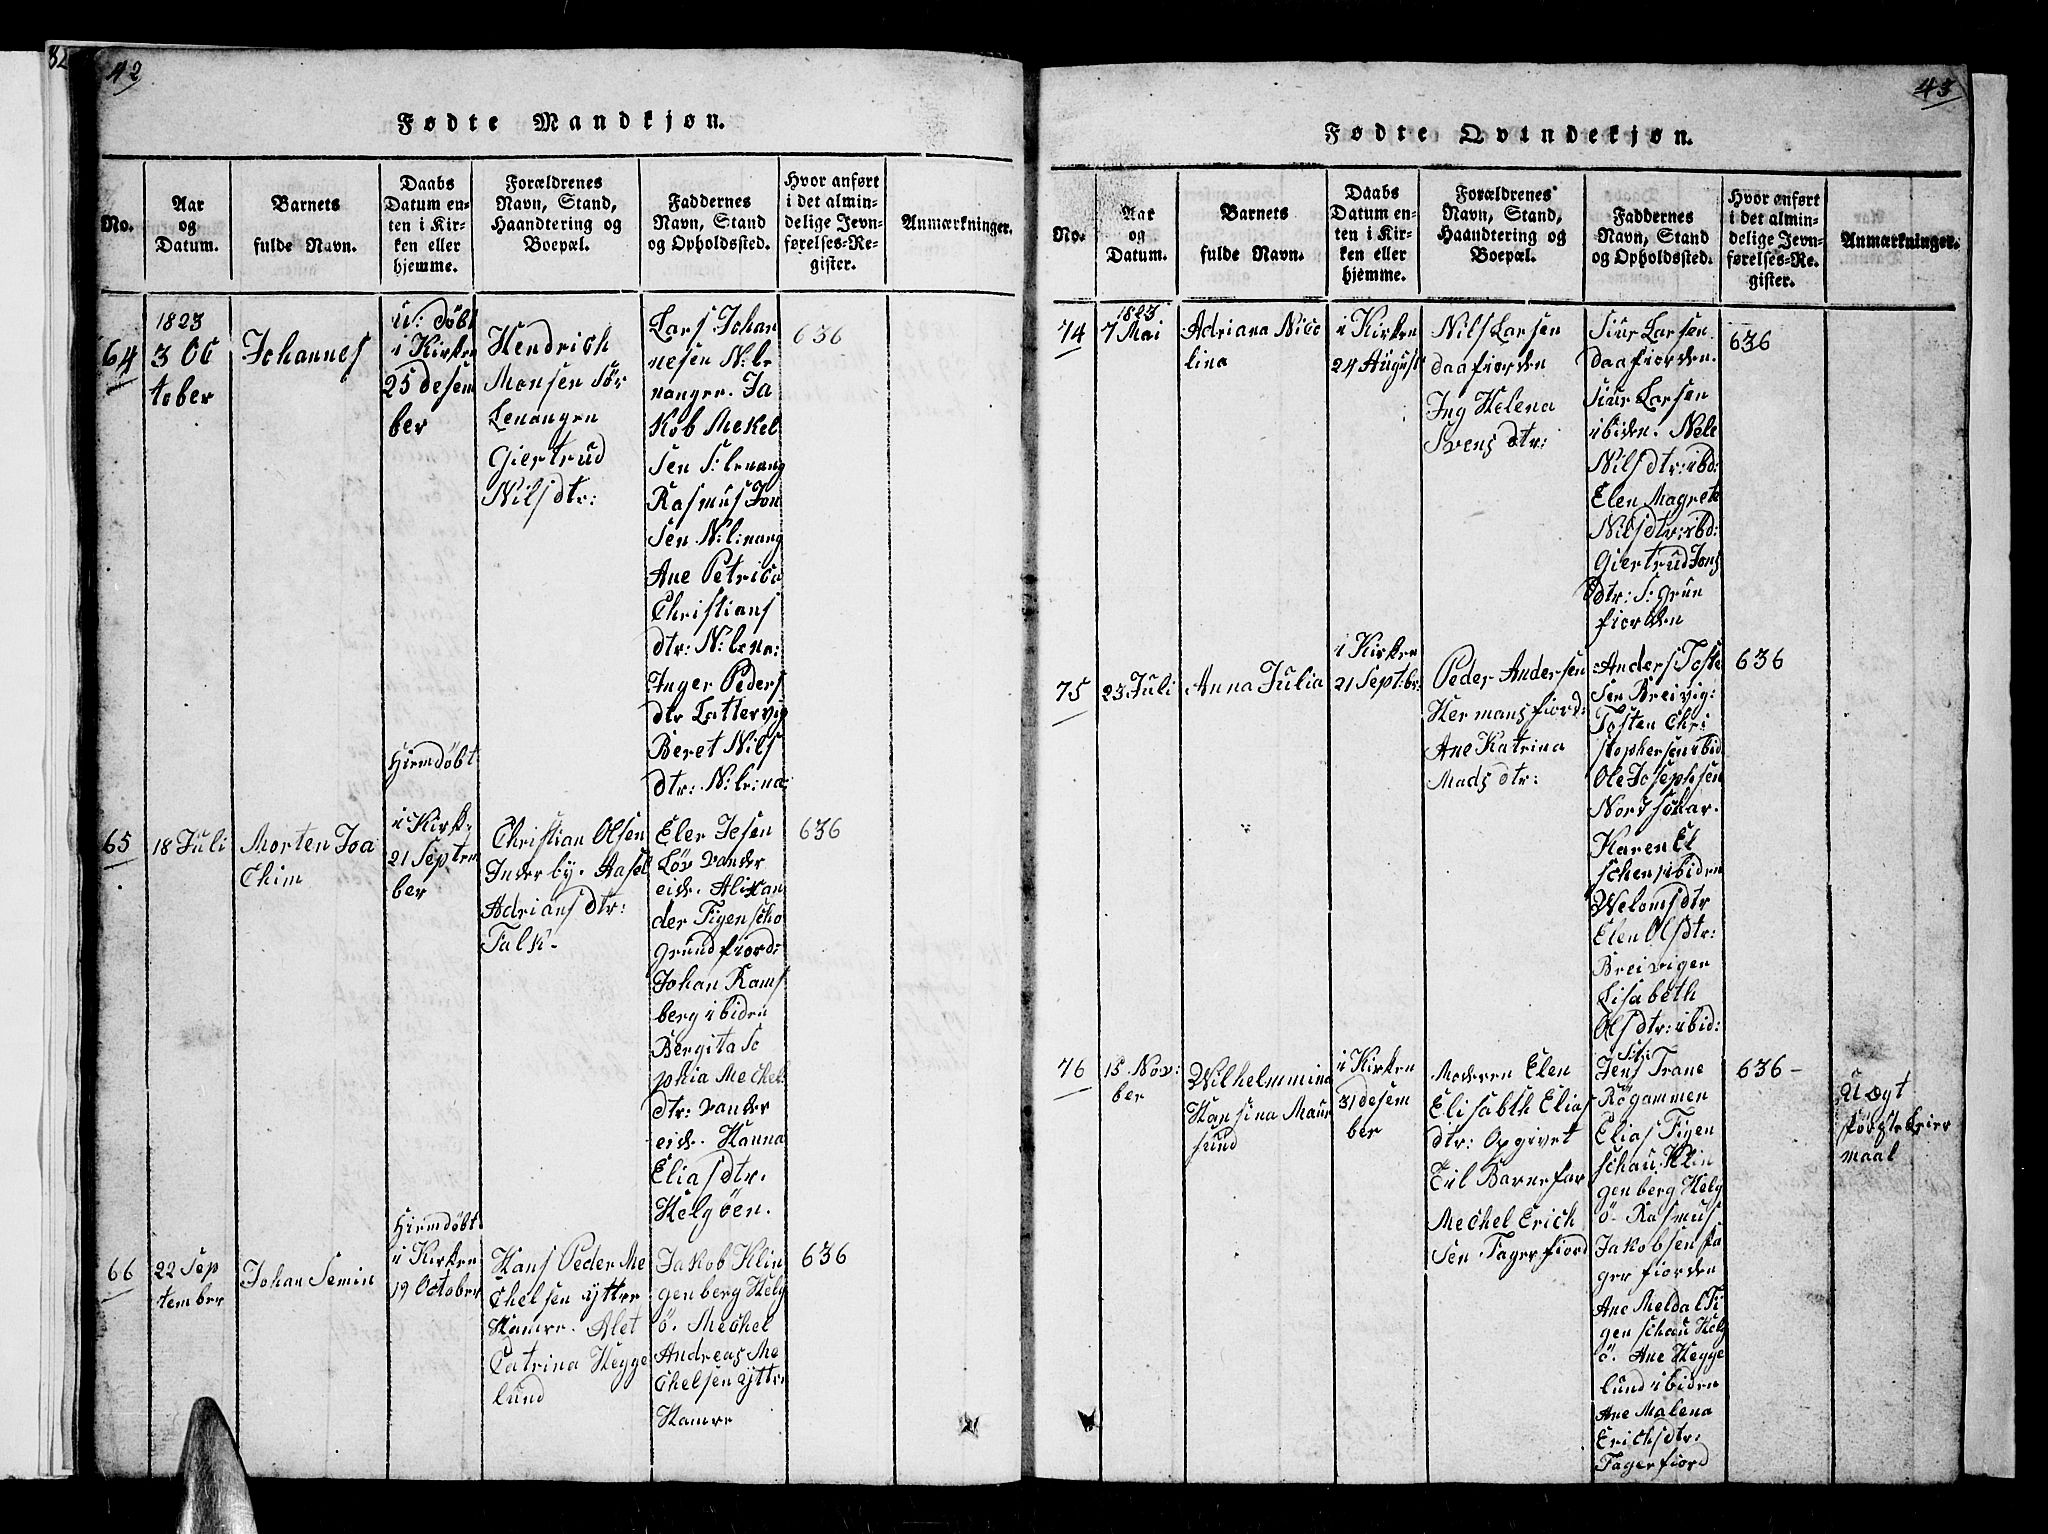 42
Fødte Mandkjøn.
No.
Aar
og
Datum.
Barnets
fulde Navn.
Daabs
Datum en-
ten i Kir-
ken eller
hjemme.
Forældrenes
Navn, Stand,
Haandtering og
Boepæl.
Faddernes
Navn, Stand
og Opholdssted.
Hvor anført
i det almin-
delige Jevn-
førelses-Re-
gister.
Anmærkninger.
64
1823
3 Oc
tober
Johannes
døbt
i Kirken
25 desem
ber
Hendrich
Monsen Sør
Lenangen
Giertrud
Nils dtr:
Lars Johan
nesen N:le
nanger. Ja
kob Mekel
sen S: lenang
Rasmus Jon
sen N: l:nang
Ane Petrica
Christians
dtr: N: lena:
Inger Peders
dtr Lattervig
Beret Nils
dtr: N: le:na:
636
65
18 Juli
Morten Joa
chim
Hiemdøbt
i Kirk:
21 Septem
ber
Christian Olsen
Inderby. Aasel
Adrians dtr:
Falk.
Eler Jesen
Løv vander
eid. Alixan
der Figenscho
grundfiord:
Johan Rams
berg ibiden
Bergita So
phia Mechel
dtr: vander
eid. Hanna
Elias dtr.
Helgøen.
636
66
22 Sep
tember
Johan Semin
Hiemdøbt
i Kirken
19 October
Hans Peder Me
chelsen ytter
Hamre. Alet
Catrina Hegge
lund
Jakob Klin
genberg Helg
ö. Mechel
Andreas Me
chelsen ytter
Hamre
636
43
Fødte Qvindekjøn.
No.
Aar
og
Datum.
Barnets
fulde Navn.
Daabs
Datum en-
ten i Kir-
ken eller
hjemme.
Forældrenes
Navn, Stand,
Haandtering og
Boepæl.
Faddernes
Navn, Stand
og Opholdssted.
Hvor anført
i det almin-
delige Jevn-
førelses-Re-
gister.
Anmærkninger.
74
1823
7 Mai
Adriana Nico
lina
i Kirken
24 August
Nils Larsen
daafiorden
Ing Helena
Svens dtr:
Siur Larsen
daafiorden.
Siur Larsen
ibiden. Nele
Nils dtr: ibd:
Elen Magrete
Nils dtr: ibd:
Giertrud Jons
dtr: S: grun
fiorden
636
75
23 Juli
Anna Julia
i Kirken
21 Sept:br:
Peder Andersen
Hermansfiord:
Ane Katrina
Mads dtr:
Anders Toste
sen Breivig:
Tosten Chri
stophersen ibid
Ole Josephsen
Nordschar.
Karen El
schens ibiden
Welomsdtr
Elen Ols dtr:
Breiviger
Lisabeth
Ols dtr: ibid:
636
76
15 Nov:
ber
Wilhelmmina
Hansina Maur
sund
i Kirken
31 desem
ber
Moderen Elen
Elisabth Elias
dtr: Opgivet
til Barnefar
Mechel Erich
sen Fagerfiord
Jens Trane
Rögammen
Elias Figen
schau. Klin
genberg Helg
ö. Rasmus
Jakobsen fa
gerfiorden
Ane Meldal Fi
genschau Helg
ö. Ane Hegge
lund ibiden
Ane Malena
Erichs dtr:
Fagerfiord
636 -
Uægt
første Leier
maal